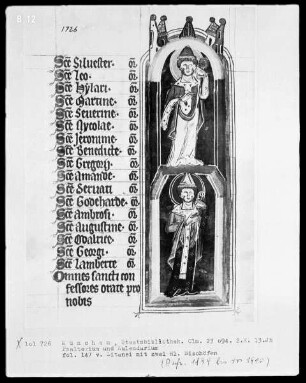 B 12
1726
Sce Siluester. or̄.
Sce Leo. or̄.
Sce Hylari. or̄.
Sce Martine. or̄.
Sce Seuerine. or̄.
Sce Nycolae. or̄.
Sce Jeronime. or̄.
Sce Benedicte. or̄.
Sce Gregorij. or̄.
Sce Amande. or̄.
Sce Seruati. or̄.
Sce Godeharde. or̄.
Sce Ambrosi. or̄.
Sce Augustine. or̄.
Sce Odalrice. or̄.
Sce Georgi. or̄.
Sce Lamberte. or̄.
Omnes sancti con
fessores orate pro
nobis
München, Staatsbibliothek. Clm. 23 094. 2.H. 13.Jh
Psalterium und Kalendarium
fol. 147 v. Litanei mit zwei hl. Bischöfen